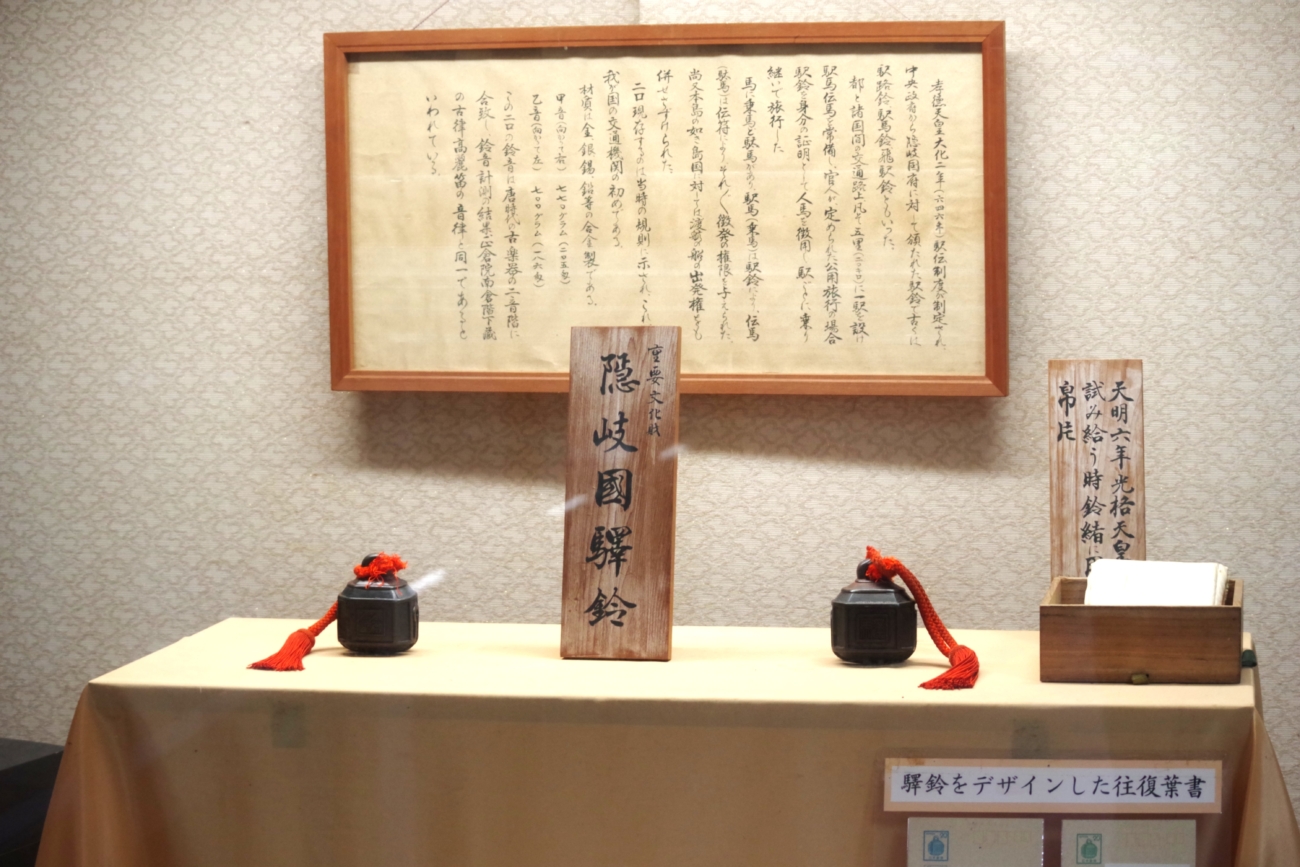 孝徳天皇大化二年(六四六年)駅伝制度が制定され、
中央政府から隠岐国府に対して領たれた駅鈴で古くは、
駅路鈴、駅馬鈴、飛駅鈴ともいった。
都と諸国間の交通路上凡そ五里(二〇キロ)に一駅を設け
駅馬伝馬を常備し、官人が定められた公用旅行の場合
駅鈴を身分の証明として人馬を徴用し、駅ごとに乗り
継いで旅行した。
馬に乗馬と駄馬があり、駅馬(乗馬)は駅鈴により、伝馬
(駄馬)は伝符によりそれ〲徴発の権限を与えられた。
尚又本島の如き島国に対しては渡海の船の出発権をも
併せさずけられた。
二口現存するのは当時の規則に示され、これ
我が国の交通機関の初めである。
材質は金、銀、錫、鉛等の合金製である。
甲音(向かって右) 七七〇グラム(二〇五匁)
乙音(向かって左) 七〇〇グラム(一八六匁)
この二口の鈴音は唐時代の古楽器の二音階に
合致し、鈴音計測の結果正倉院南倉階下蔵
の古律高麗笛の音律と同一であると
いわれている。
重要文化財
隠岐國驛鈴
天明六年光格天皇
試み給う時鈴緒に
帛片
驛鈴をデザインした往復葉書